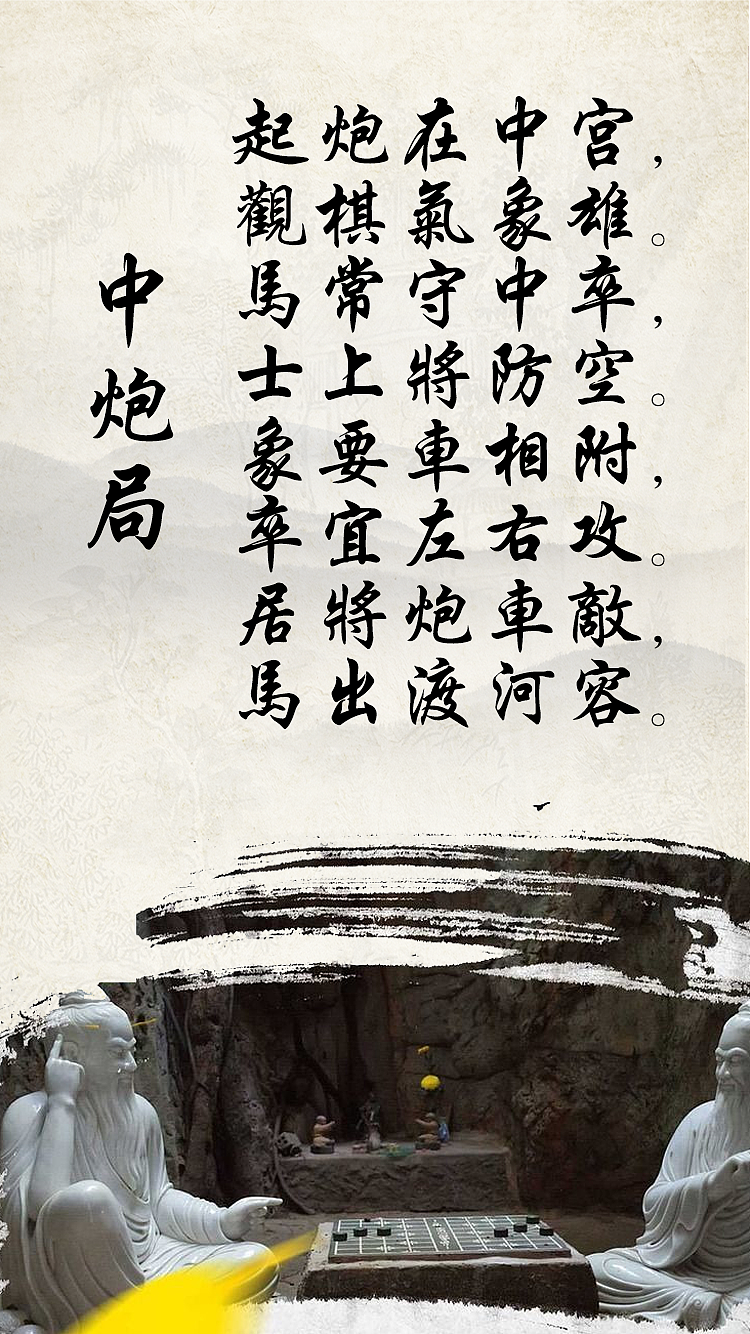 中炮局
起炮在中宮，
觀棋氣象雄。
馬常守中卒，
士上將防空。
象要車相附，
卒宜左右攻。
居將炮車敵，
馬出渡河容。